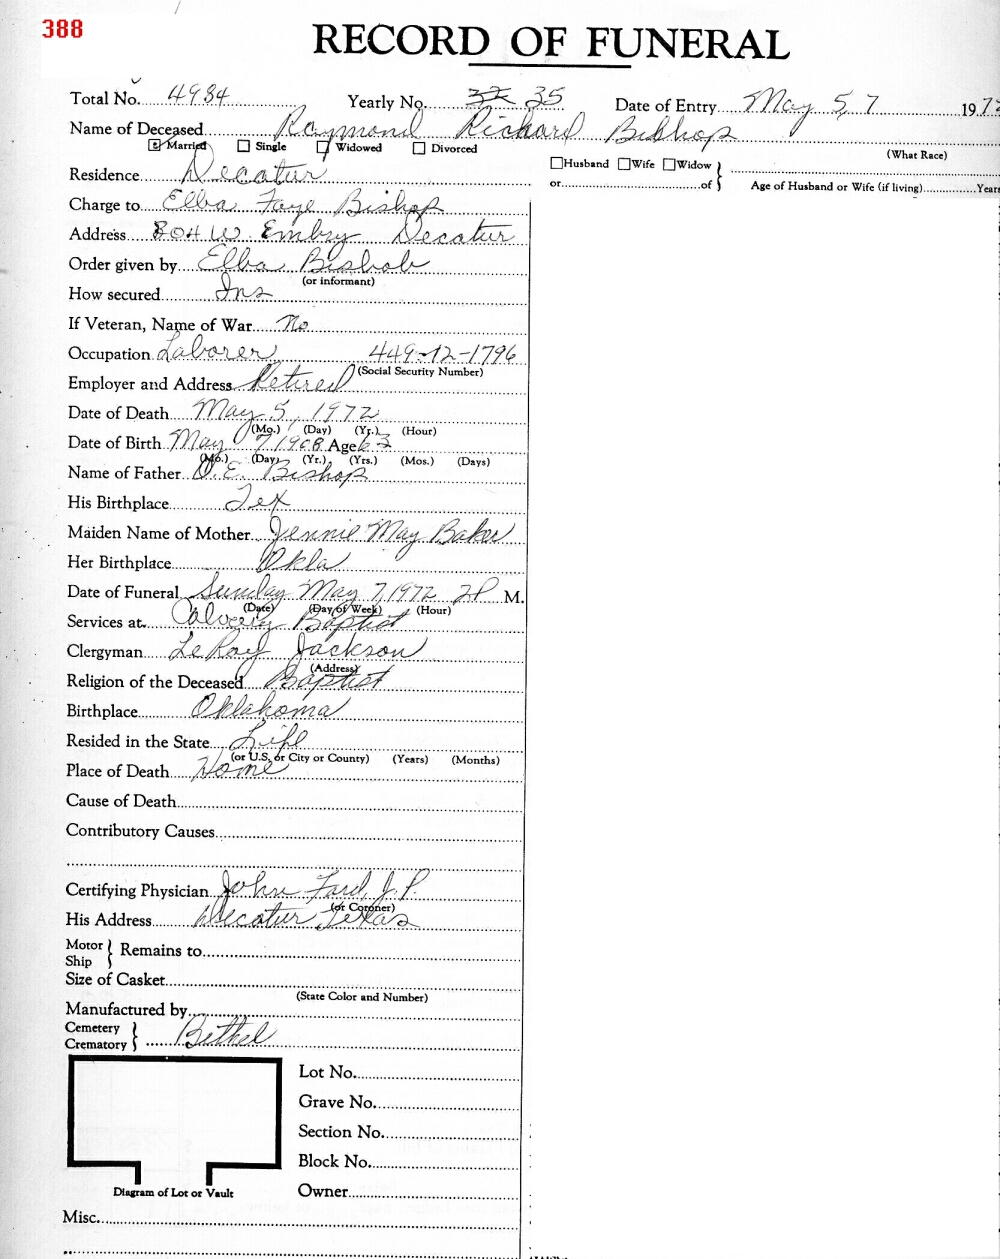 388
RECORD OF FUNERAL
Total No. 4934 Yearly No. 37 35 Date of Entry May 5, 7 197
Name of Deceased Raymond Richard Bishop
Married Single Widowed Divorced
(What Race)
Husband Wife Widow
or of Age of Husband or Wife (if living) Years
Residence Decatur
Charge to Elba Faye Bishop
Address 804 W. Embry Decatur
Order given by Elba Bishop
(or informant)
How secured Ins
If Veteran, Name of War No
Occupation Laborer 449-12-1796
(Social Security Number)
Employer and Address Retired
Date of Death May 5, 1972
(Mo.) (Day) (Yr.) (Hour)
Date of Birth May 7 1908 Age 63
(Mo.) (Day) (Yr.) (Yrs.) (Mos.) (Days)
Name of Father O.E. Bishop
His Birthplace Tex
Maiden Name of Mother Jennie May Baker
Her Birthplace Okla
Date of Funeral Sunday May 7, 1972 2 P M.
(Date) (Day of Week) (Hour)
Services at Calvery Baptist
Clergyman LeRoy Jackson
(Address)
Religion of the Deceased Baptist
Birthplace Oklahoma
Resided in the State Life
(or U.S. or City or County) (Years) (Months)
Place of Death Home
Cause of Death
Contributory Causes
Certifying Physician John Ford, J.P.
(or Coroner)
His Address Decatur Texas
Motor Ship Remains to
Size of Casket
(State Color and Number)
Manufactured by
Cemetery Crematory Bethel
Lot No.
Grave No.
Section No.
Block No.
Diagram of Lot or Vault
Owner
Misc.